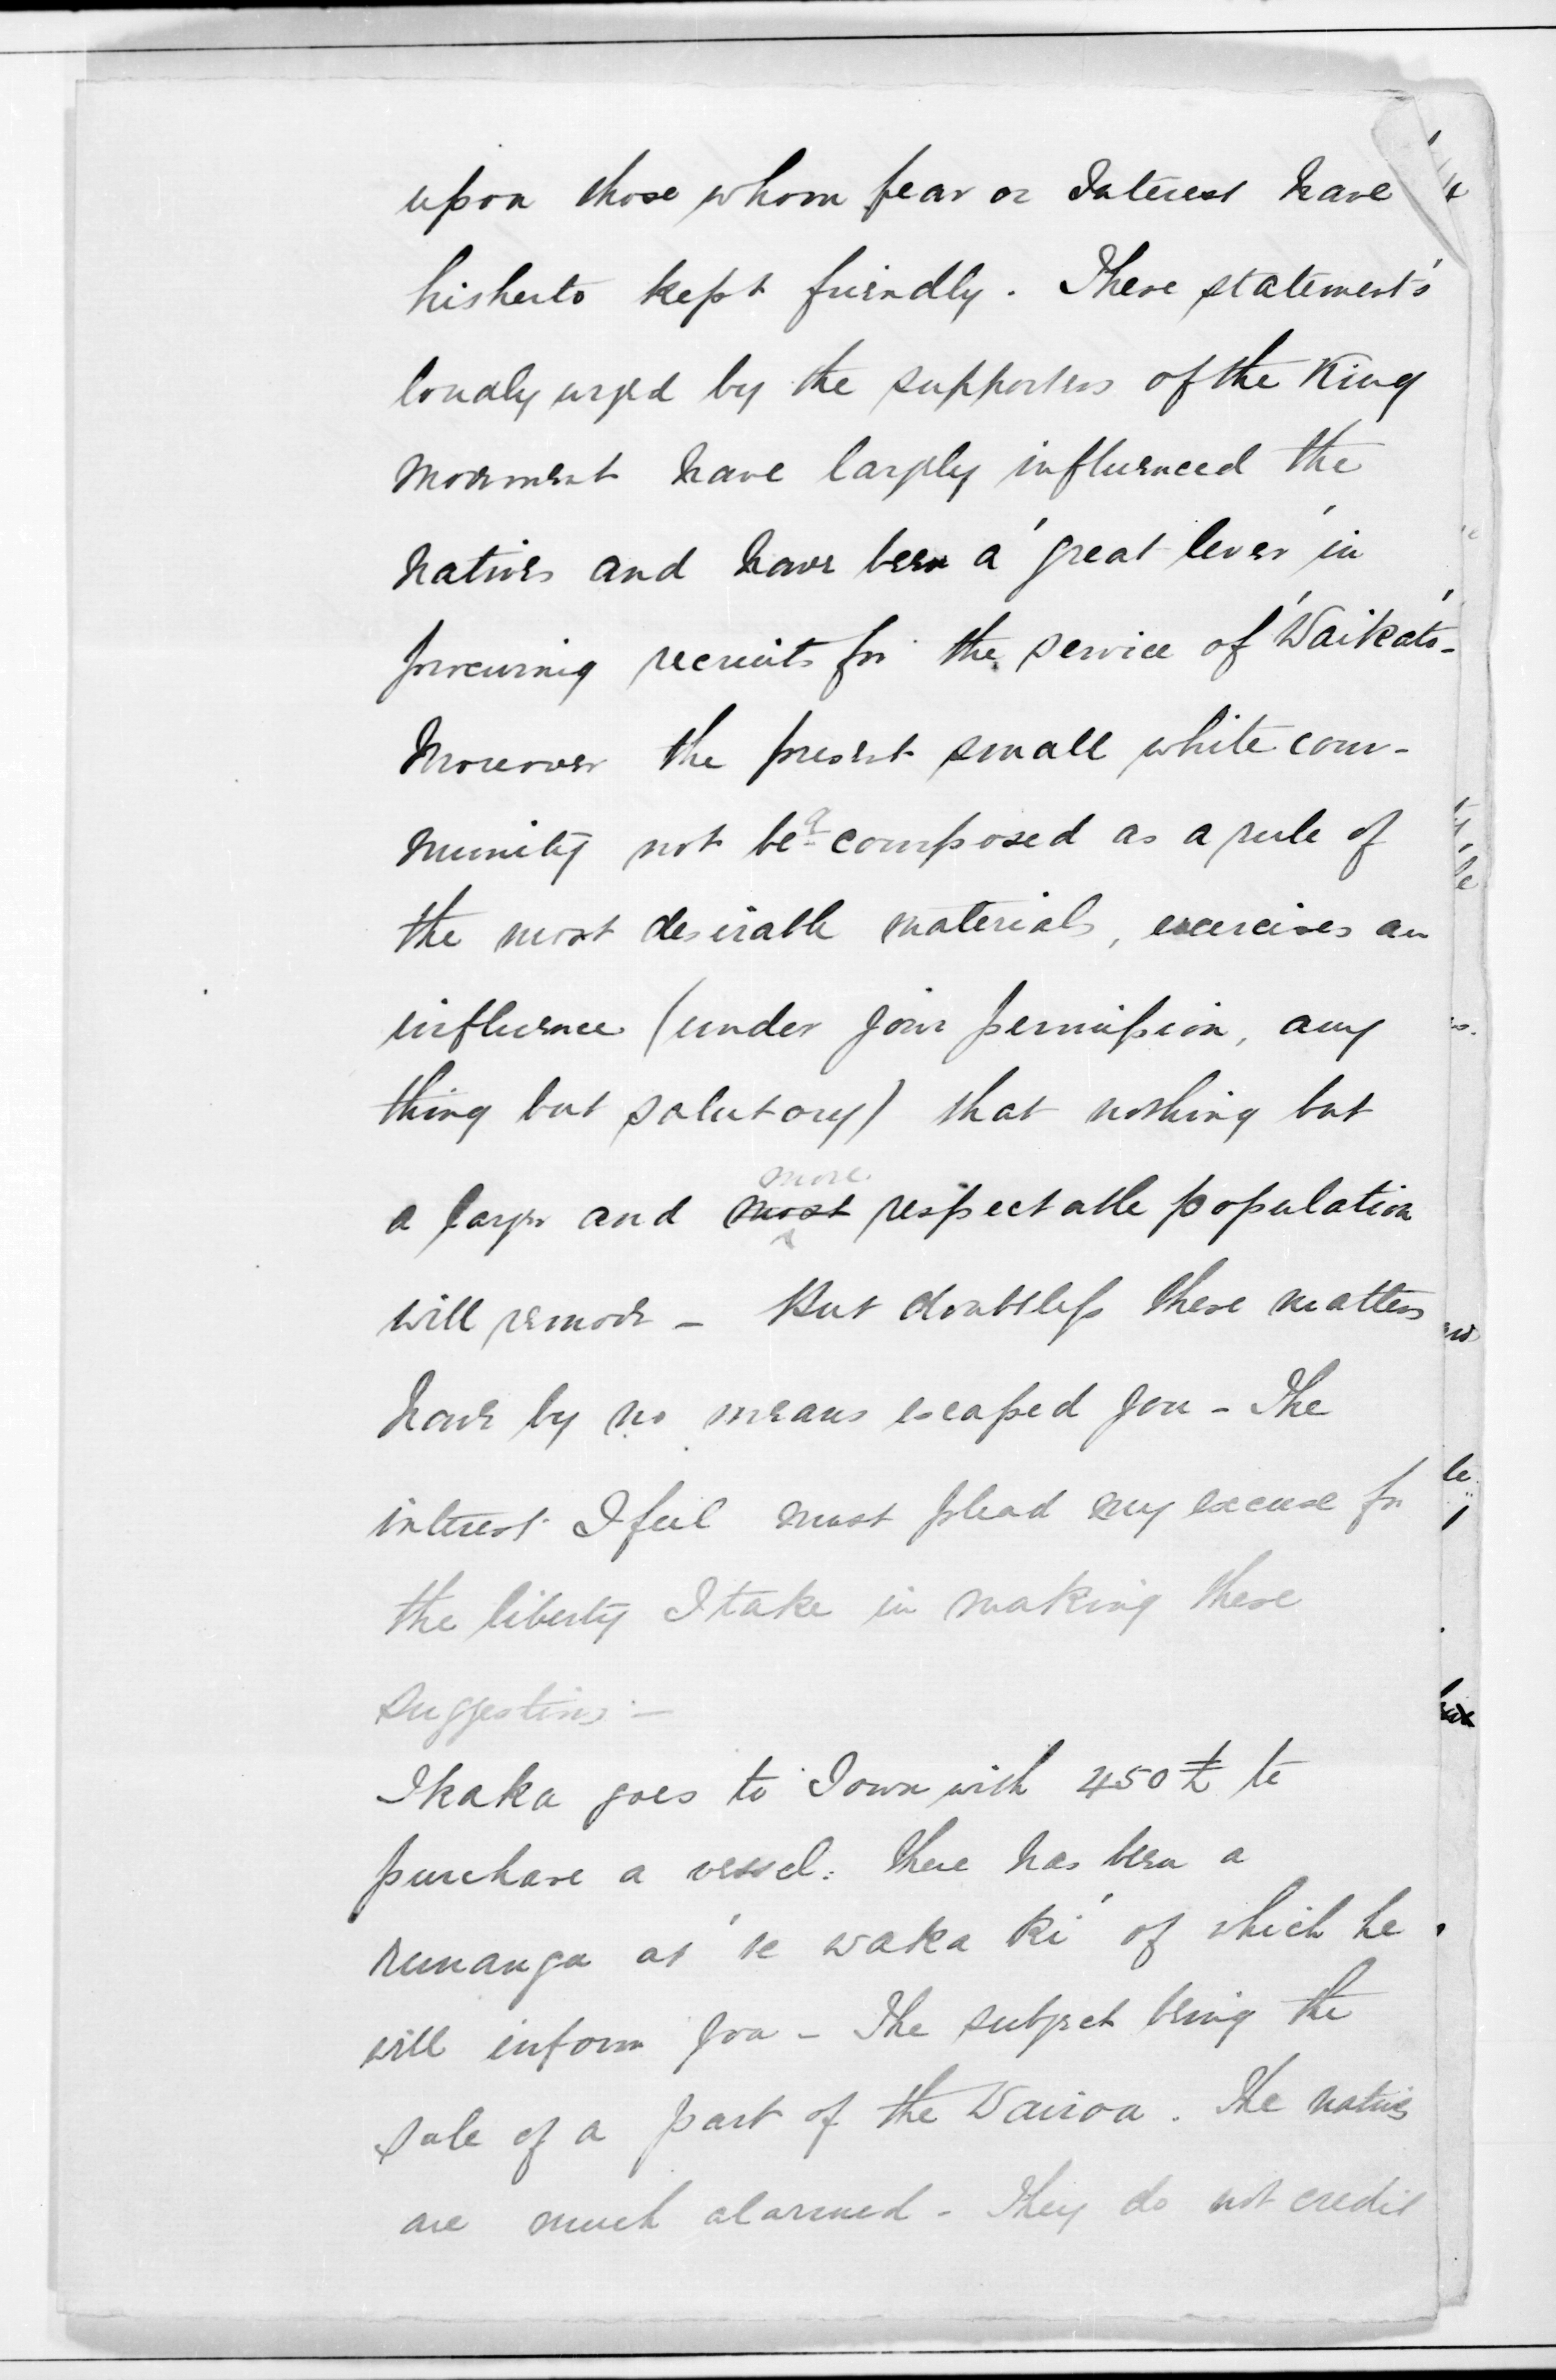 upon those whom fear or Interest have
hitherto kept friendly. These statements
loudly urged by the supporters of the King
movement have largely influenced the
Natives and have been a 'great lever' in
procuring recruits for the service of 'Waikato'-
Moreover the present small white com-
munity not beg composed as a rule of
the most desirable materials, exercises an
influence (under your permission, any
thing but salutory) that nothing but
more
a larger and most respectable population
will remove - But doubtless these matters
have by no means escaped you - The
interest I feel must plead my excuse for
the liberty I take in making these
suggestions -
Ikaka goes to Town with 450 £ to
purchase a vessel: there has been a
runanga at 'te waka ki' of which he
will inform you - The subject being the
sale of a part of the Wairoa. The natives
are much alarmed - They do not credit